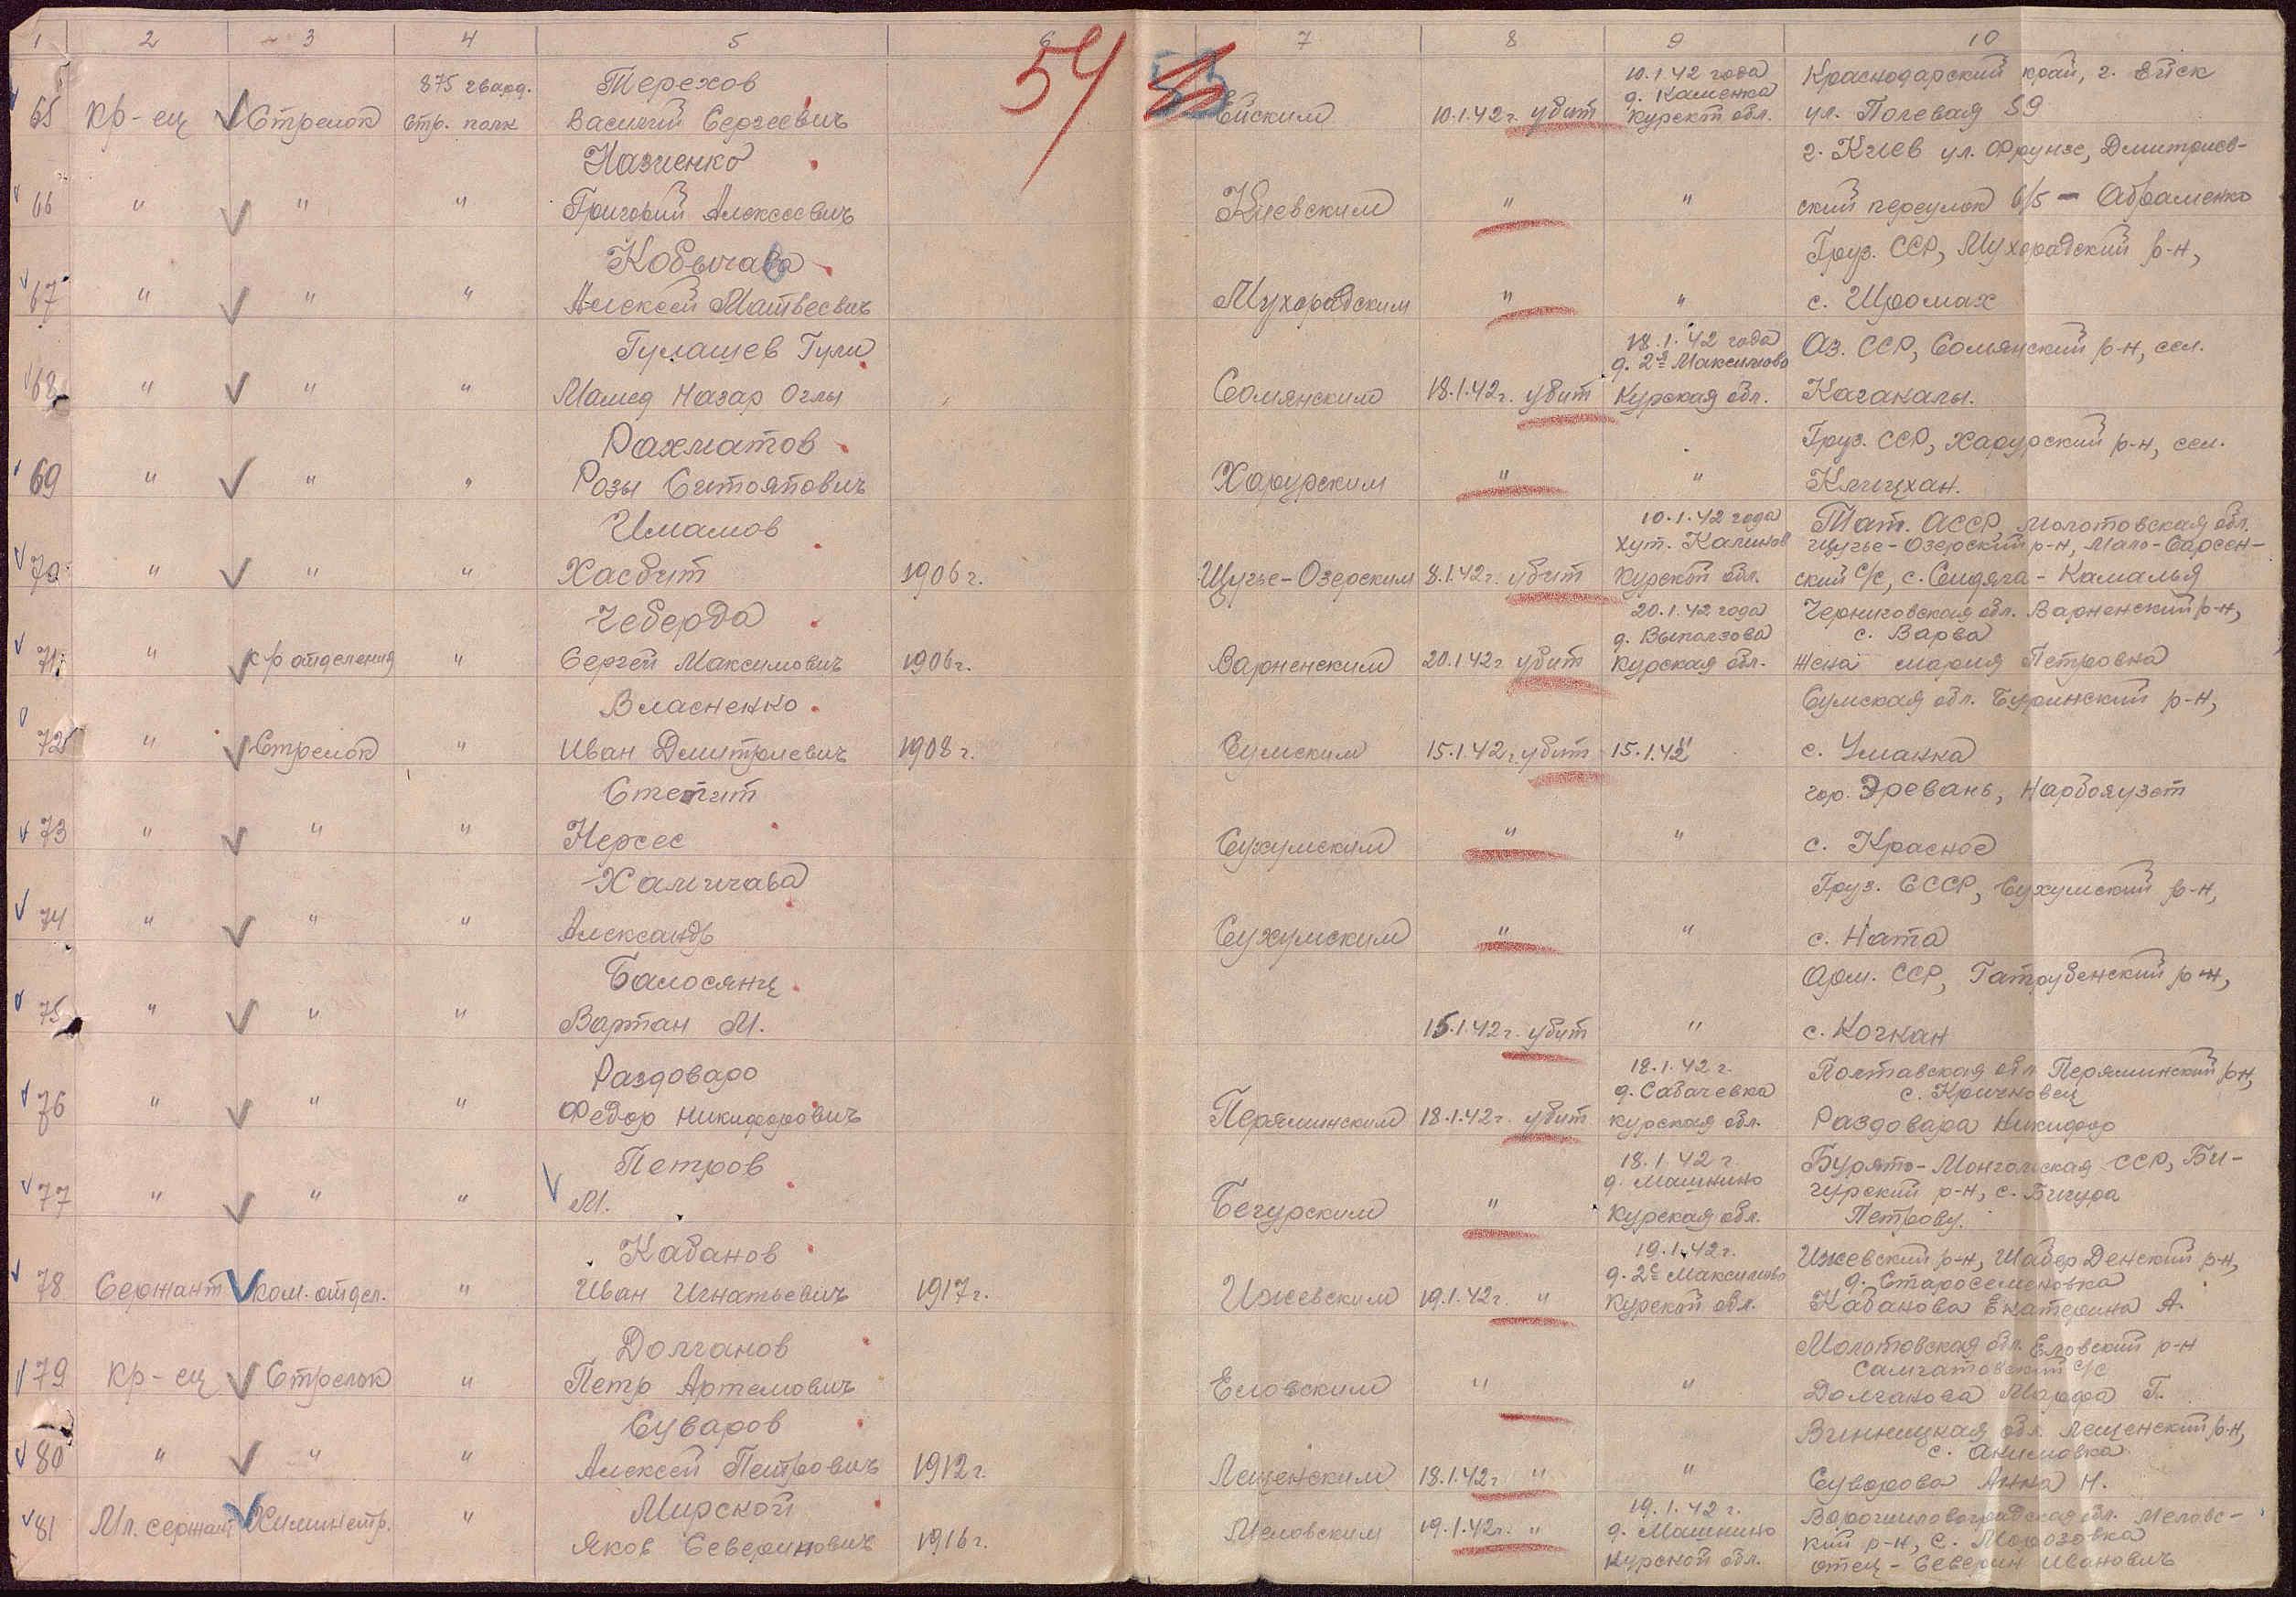 1 2 3 4 5 6 7 8 9 10
54
875 гвард. Терехов 10.1.42 года Краснодарский край, г. Ейск
д. Каменка
65 Кр-ец Стрелок Стр. полк Василий Сергеевич Ейским 10.1.42 г. убит Курской обл. ул. Полевая 59
Назиенко г. Киев ул. Фрунзе, Дмитриев-
66 " " " Григорий Алексеевич Киевским " " ский переулок 6/5 - Абраменко
Кобычава Груз. ССР, Мухорадский р-н,
67 " " " Алексей Матвеевич Мухорадским " " с. Щромах
Гулашев Гули 18.1.42 года Аз. ССР, Сомянский р-н, сел.
д. 2е Максимово
68 " " " Мамед Назар Оглы Сомянским 18.1.42 г. убит Курская обл. Каганалы.
Рахматов Груз. ССР, Харурский р-н, сел.
69 " " " Розы Ситоятович Харурским " " Клицхан.
Имамов 10.1.42 года Тат. АССР, Молотовская обл.
хут. Калинов Щучье-Озерский р-н, Мало-Сарсен-
70 " " " Хасбит 1906 г. Щучье-Озерским 8.1.42 г. убит Курской обл. ский с/с, с. Сендяга-Камалья
Чеберда 20.1.42 года Черниговская обл. Варненский р-н,
д. Выползова с. Варва
71 " к-р отделения " Сергей Максимович 1906 г. Варненским 20.1.42 г. убит Курская обл. жена Мария Петровна
Власненко Сумская обл. Буринский р-н,
72 " Стрелок " Иван Дмитриевич 1908 г. Сумским 15.1.42 г. убит 15.1.42 " с. Уманка
Степит гор. Эревань, Нарбояузот
73 " " " Нерсес Сухумским " " с. Красное
Халичава Груз. СССР, Сухумский р-н,
74 " " " Александр Сухумским " " с. Ната
Балосянц Арм. ССР, Гатрубенский р-н,
75 " " " Вартан М. 15.1.42 г. убит " с. Кочкан
Раздоваро 18.1.42 г. Полтавская обл. Перяминский р-н,
д. Сабачевка с. Кричновец
76 " " " Федор Никифорович Перяминским 18.1.42 г. убит Курская обл. Раздовара Никифор
Петров 18.1.42 г. Бурято-Монгольская ССР, Би-
д. Машнино чурский р-н, с. Бичура
77 " " " М. Бечурским " Курская обл. Петрову.
Кабанов 19.1.42 г. Ижевский р-н, Шабер Денский р-н,
д. 2е Максимово д. Старосеменовка
78 Сержант Ком. отдел. " Иван Игнатьевич 1917 г. Ижевским 19.1.42 г. " Курской обл. Кабанова Екатерина А.
Долганов Молотовская обл. Еловский р-н
Салчатовский с/с
79 Кр-ец Стрелок " Петр Артемович Еловским " " Долганова Марфа П.
Суваров Винницкая обл. Лещенский р-н,
с. Акимовка
80 " " " Алексей Петрович 1912 г. Лещенским 18.1.42 г. " " Суворова Анна Н.
Мирской 19.1.42 г. Ворошиловоградская обл. Меловс-
81 Мл. сержант Химинстр. " Яков Северинович 1916 г. Меловским 19.1.42 г. " д. Машнино кий р-н, с. Морозовка
Курской обл. отец - Северин Иванович